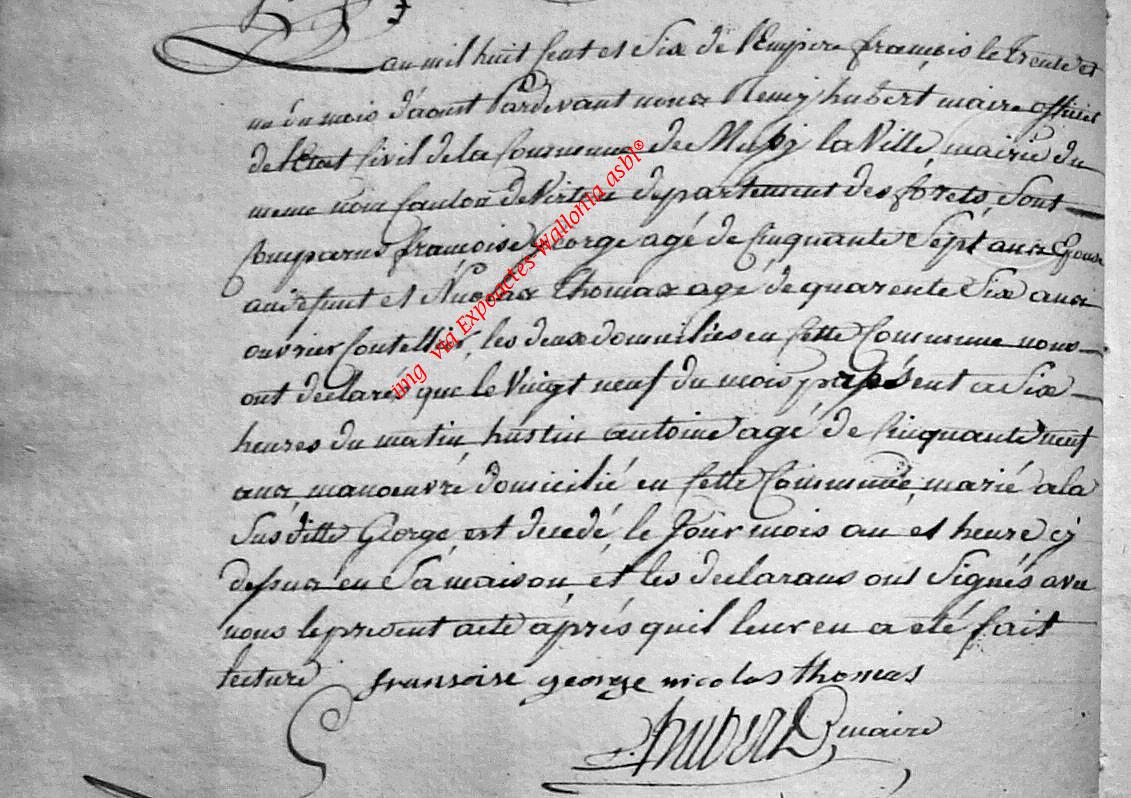 L'an mil huit cent et Six de l'Empire françois le trente et
un du mois d'aoust Pardevant nous Remy hubert maire officier
de l'Etat Civil de la Commune de Mussy la Ville, mairie du
meme nom Canton de Virton departement des forets, Sont
Comparus françoise George agé de Cinquante Sept ans Epouse
au defunt et Nicolas Thomas agé de quarente Six ans
ouvrier Coutellier, les deux domiciliés en cette Commune nous
ont declarés que le Vingt neuf du mois présent a Six
heures du matin, hustin antoine agé de Cinquante neuf
ans, manoeuvre domicilié en Cette Commune, marié a la
Sus ditte George est decedé, le Jour mois an et heure cy
dessus en Sa maison, et les declarans ont Signés avec
nous le present acte après quil leur en a eté fait
lecture fransoise george nicolas thomas
hubert maire
img via Expoactes Wallonia asbl®